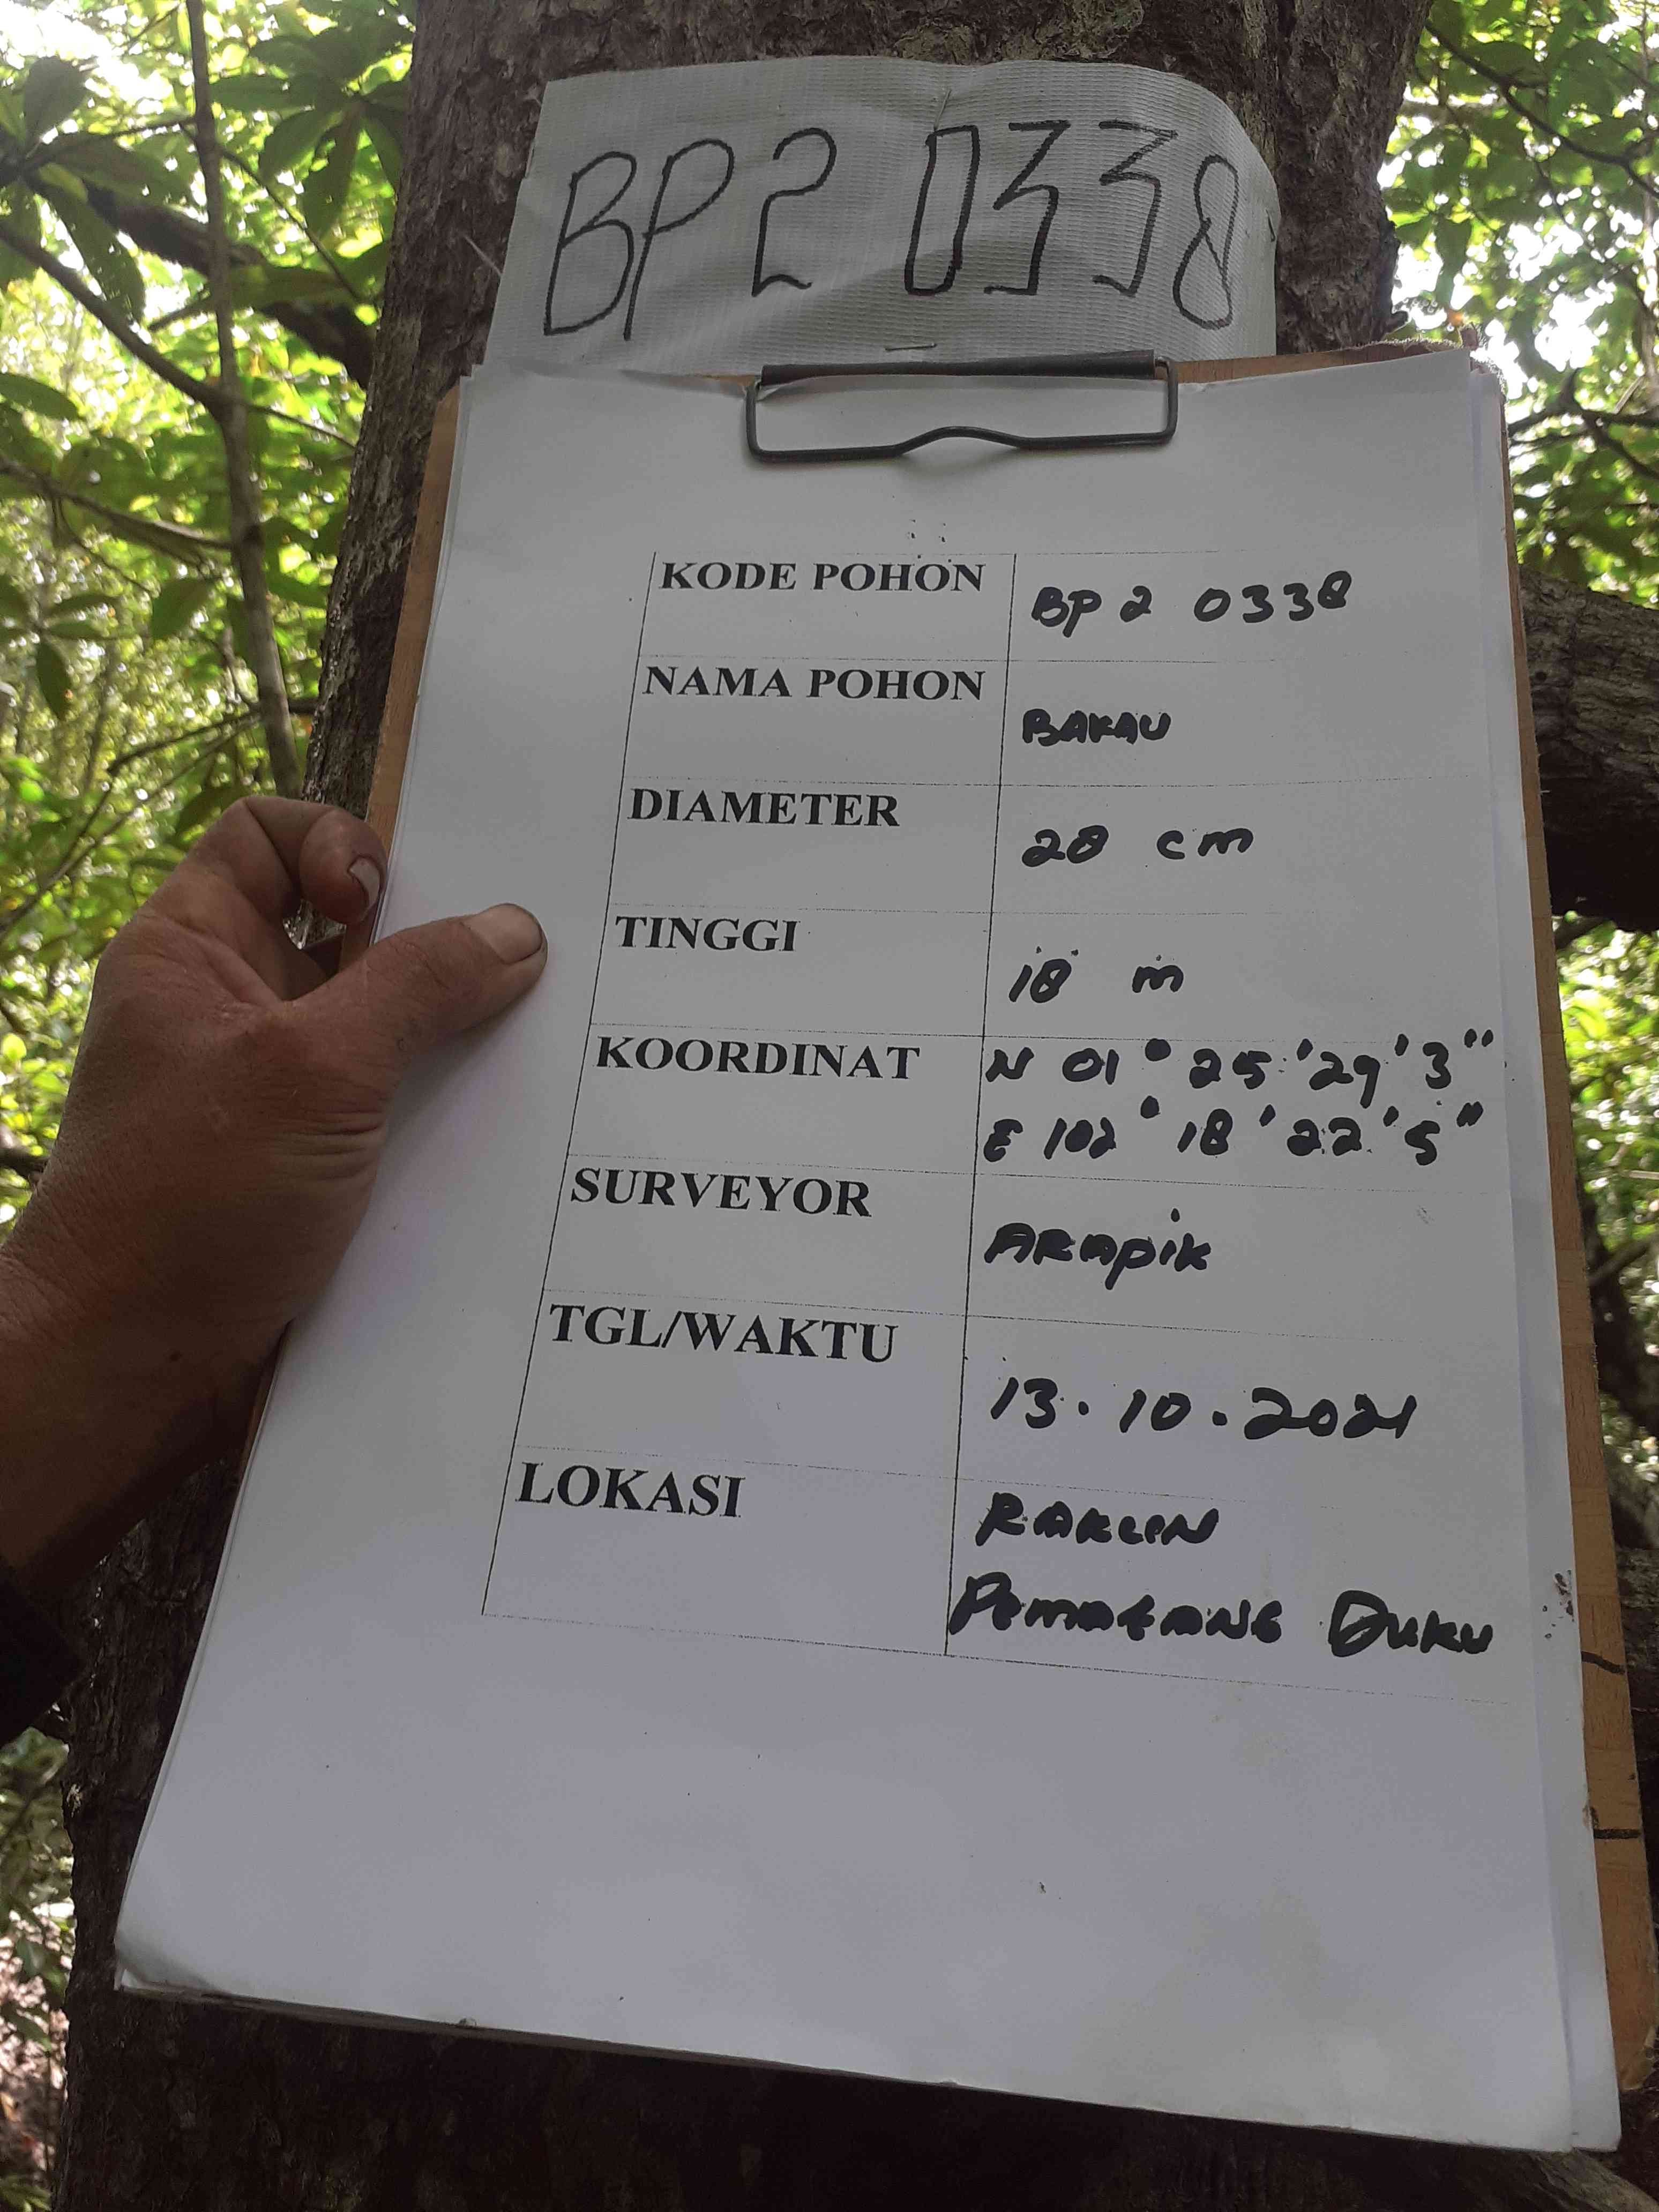 BP2 0338
KODE POHON BP2 0338
NAMA POHON BAKAU
DIAMETER 28 cm
TINGGI 18 m
KOORDINAT N 01° 25 '29 '3"
E 102° 18 ' 22 ' 5"
SURVEYOR ARAPiK
TGL/WAKTU 13.10.2021
LOKASI
DUKU